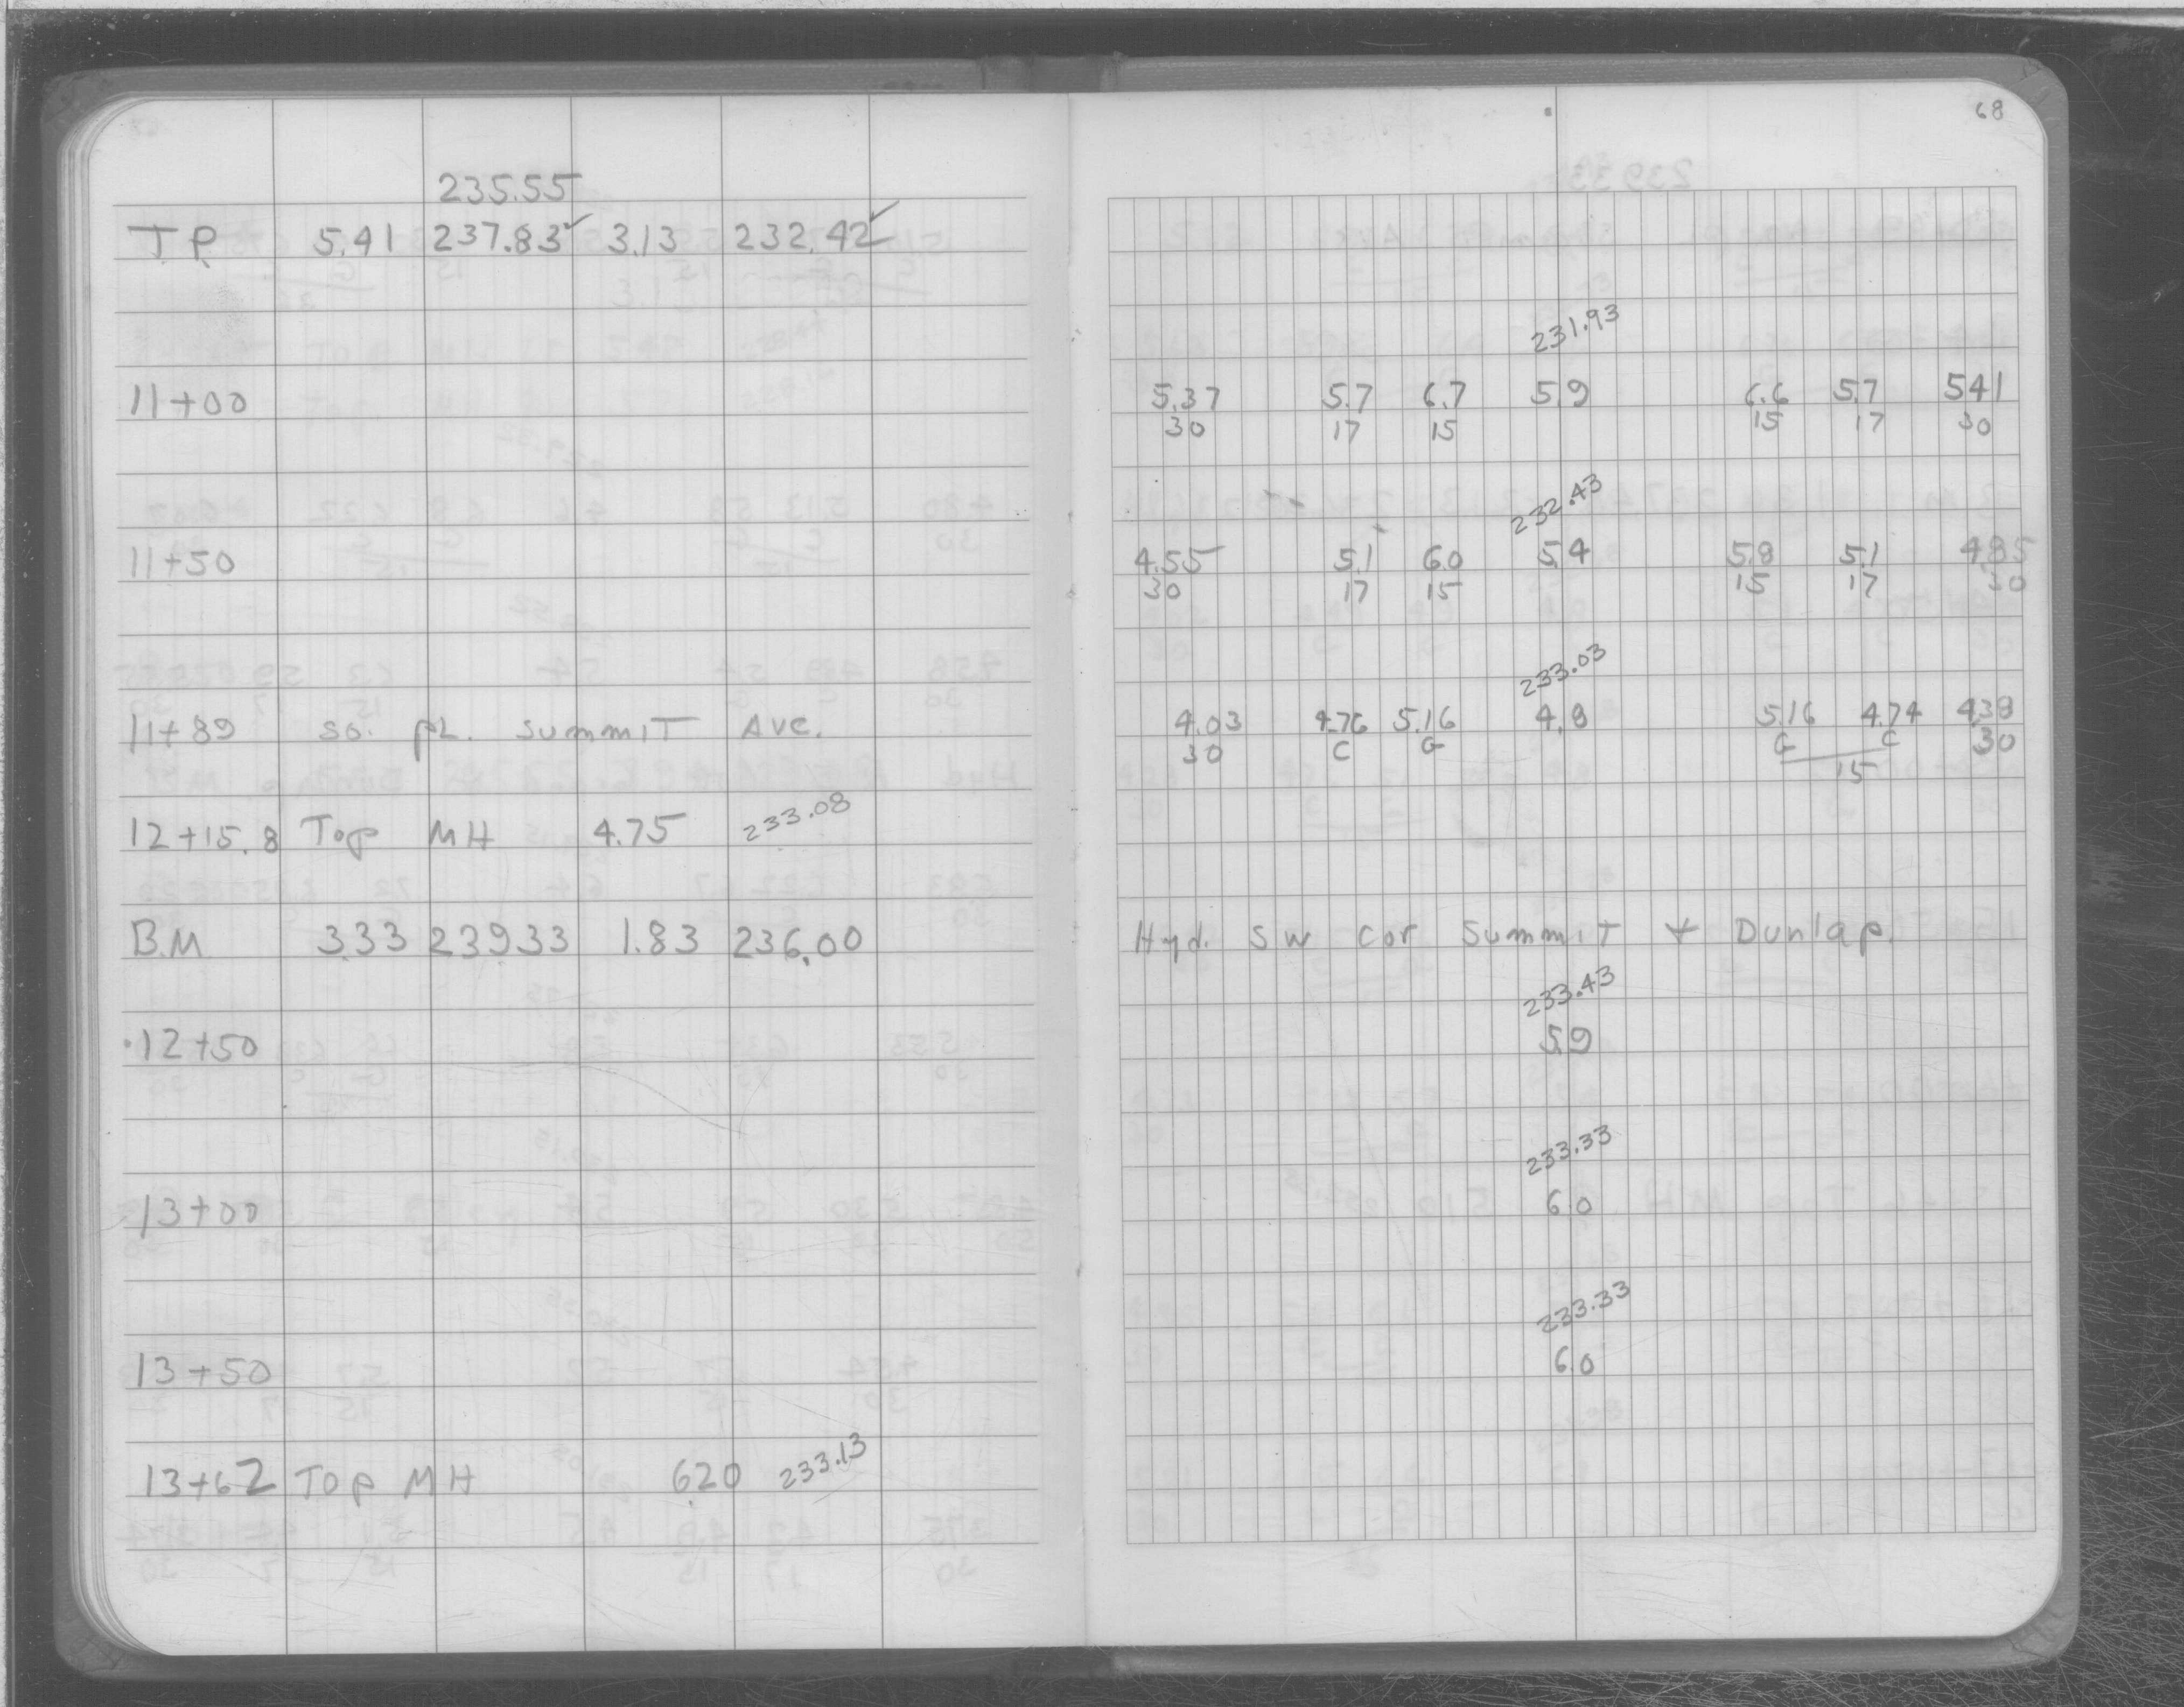 68
235.55
T.P. 5.41 237.83✓ 3.13 232.42✓
231.93
11+00 5.37 5.7 6.7 5.9 6.6 5.7 5.41
30 17 15 15 17 30
232.43
11+50 4.55 5.1 6.0 5.4 5.8 5.1 4.85
30 17 15 15 17 30
233.03
11+89 so. pL. summiT Ave. 4.03 4.76 5.16 4.8 5.16 4.74 4.38
30 C G G C 30
15
12+15.8 Top MH 4.75 233.08
B.M 3.33 239.33 1.83 236.00 Hyd. SW Cor SummiT + Dunlap.
233.43
12+50 5.9
233.33
13+00 6.0
233.33
13+50 6.0
13+62 Top MH 6.20 233.13